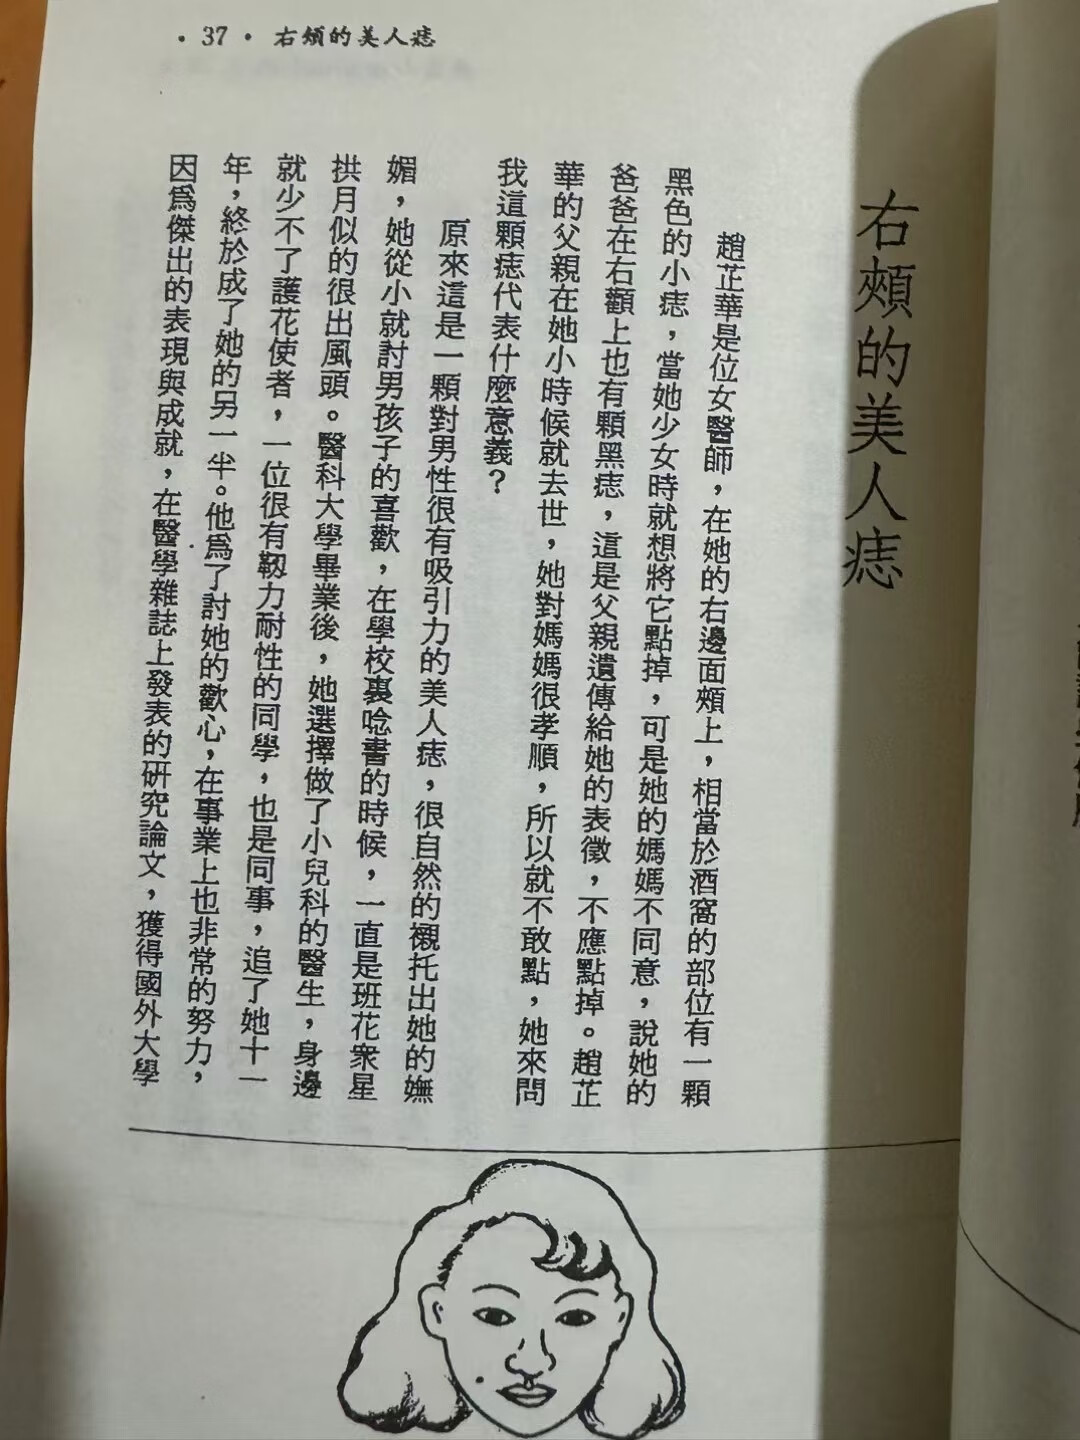 •37• 右頰的美人痣
右頰的美人痣
趙芷華是位女醫師，在她的右邊面頰上，相當於酒窩的部位有一顆
黑色的小痣，當她少女時就想將它點掉，可是她的媽媽不同意，說她的
爸爸在右顴上也有顆黑痣，這是父親遺傳給她的表徵，不應點掉。趙芷
華的父親在她小時候就去世，她對媽媽很孝順，所以就不敢點，她來問
我這顆痣代表什麼意義？
原來這是一顆對男性很有吸引力的美人痣，很自然的襯托出她的嫵
媚，她從小就討男孩子的喜歡，在學校裏唸書的時候，一直是班花衆星
拱月似的很出風頭。醫科大學畢業後，她選擇做了小兒科的醫生，身邊
就少不了護花使者，一位很有韌力耐性的同學，也是同事，追了她十一
年，終於成了她的另一半。他爲了討她的歡心，在事業上也非常的努力，
因爲傑出的表現與成就，在醫學雜誌上發表的研究論文，獲得國外大學